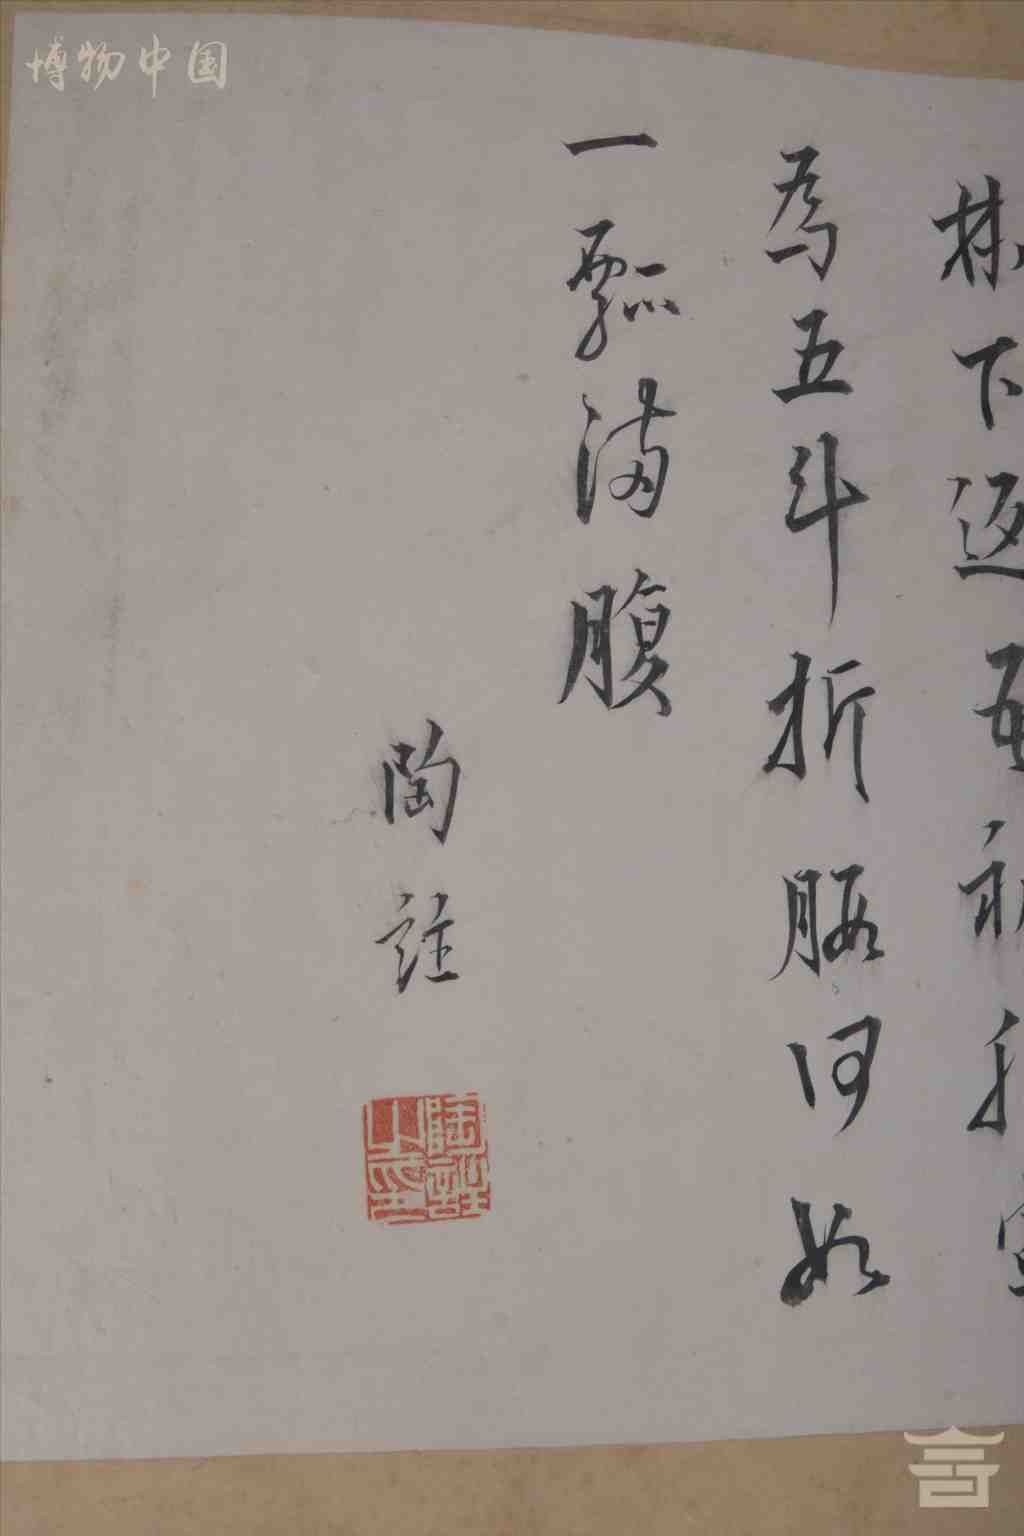 博物中国
林下返吾
為五斗折腰何如
一瓢滿腹
陶註